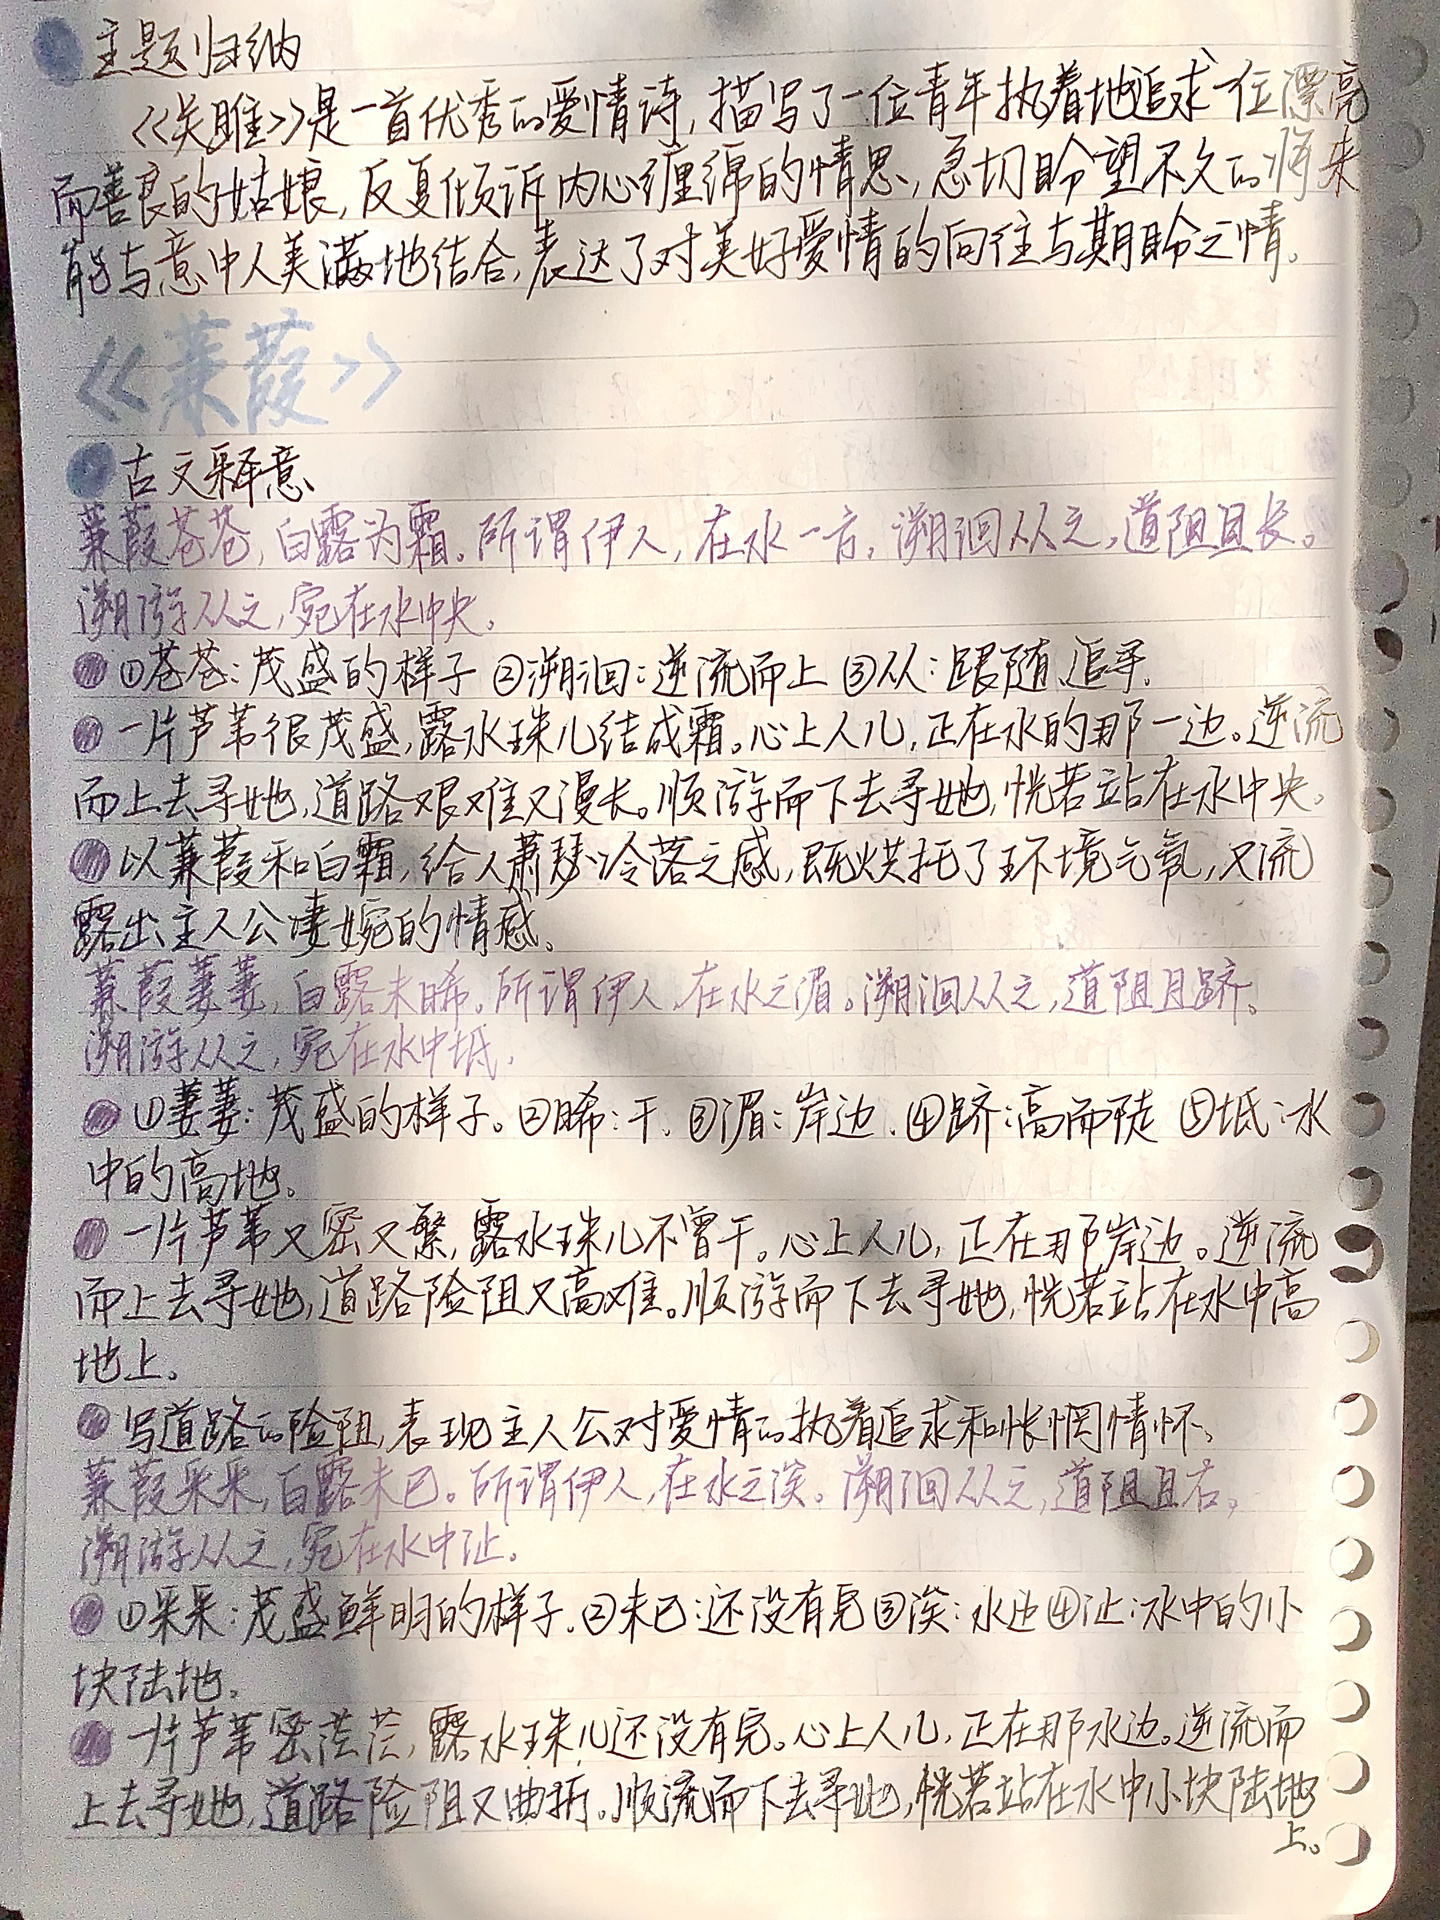 主题归纳
《关雎》是一首优秀的爱情诗，描写了一位青年执着地追求一位漂亮
而善良的姑娘，反复倾诉内心缠绵的情思，急切盼望不久的将来
能与意中人美满地结合，表达了对美好爱情的向往与期盼之情。
《蒹葭》
古文释意
蒹葭苍苍，白露为霜。所谓伊人，在水一方。溯洄从之，道阻且长。
溯游从之，宛在水中央。
①苍苍：茂盛的样子 ②溯洄：逆流而上 ③从：跟随、追寻。
一片芦苇很茂盛，露水珠儿结成霜。心上人儿，正在水的那一边。逆流
而上去寻她，道路艰难又漫长。顺游而下去寻她，恍若站在水中央。
以蒹葭和白霜，给人萧瑟冷落之感，既烘托了环境气氛，又流
露出主人公凄婉的情感。
蒹葭萋萋，白露未晞。所谓伊人，在水之湄。溯洄从之，道阻且跻。
溯游从之，宛在水中坻。
①萋萋：茂盛的样子。②晞：干。③湄：岸边。④跻：高而陡 ⑤坻：水
中的高地。
一片芦苇又密又繁，露水珠儿不曾干。心上人儿，正在那岸边。逆流
而上去寻她，道路险阻又高难。顺游而下去寻她，恍若站在水中高
地上。
写道路的险阻，表现主人公对爱情的执着追求和怅惘情怀。
蒹葭采采，白露未已。所谓伊人，在水之涘。溯洄从之，道阻且右，
溯游从之，宛在水中沚。
①采采：茂盛鲜明的样子。②未已：还没有完 ③涘：水边 ④沚：水中的小
块陆地。
一片芦苇密茫茫，露水珠儿还没有完。心上人儿，正在那水边。逆流而
上去寻她，道路险阻又曲折。顺流而下去寻她，恍若站在水中小块陆地
上。